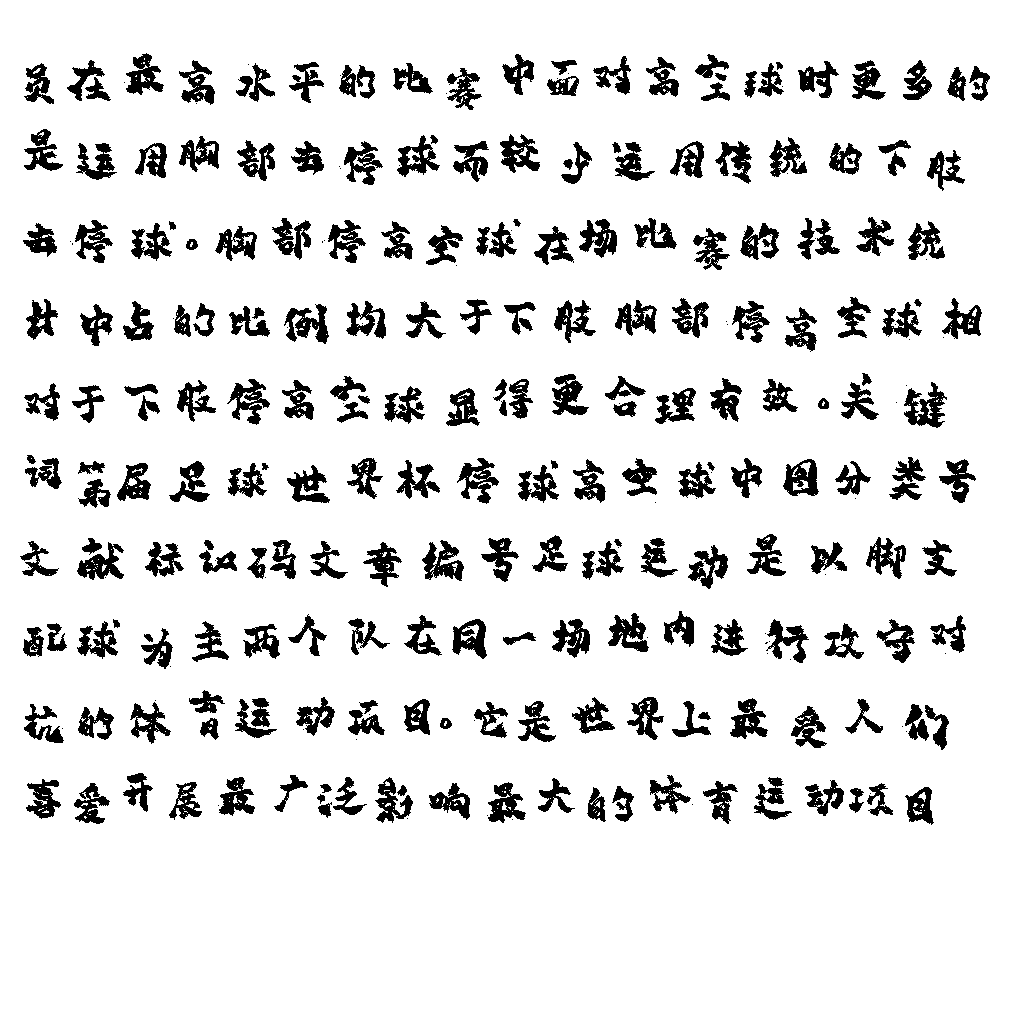 员在最高水平的比赛中面对高空球时更多的
是运用胸部去停球而较少运用传统的下肢
去停球。胸部停高空球在场比赛的技术统
计中占的比例均大于下肢胸部停高空球相
对于下肢停高空球显得更合理有效。关键
词第届足球世界杯停球高空球中图分类号
文献标识码文章编号足球运动是以脚支
配球为主两个队在同一场地内进行攻守对
抗的体育运动项目。它是世界上最受人们
喜爱开展最广泛影响最大的体育运动项目